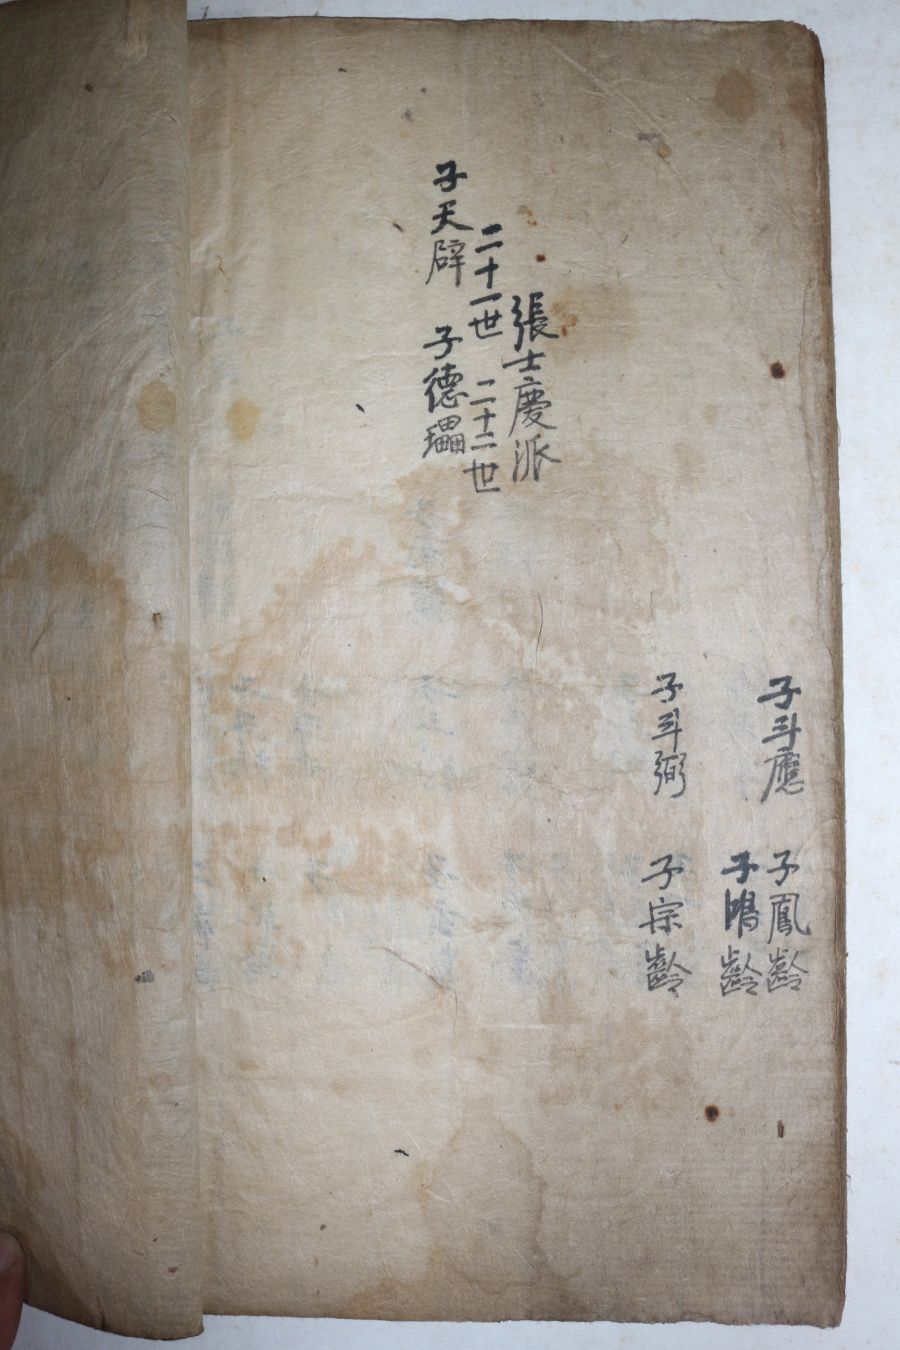 子斗應
子鳳齡
子鳴齡
子斗弼
子宗齡
張士慶派
二十一世 二十二世
子天辟 子德